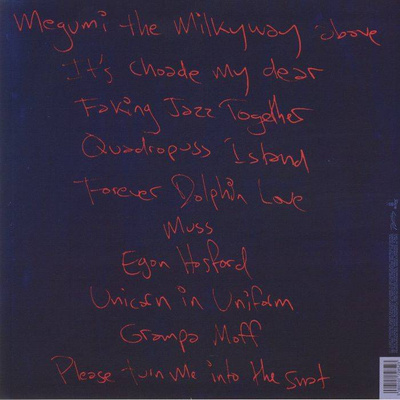 Megumi the Milkyway above
It's Choade my dear
Faking Jazz Together
Quadropuss Island
Forever Dolphin Love
Muss
Egon Hosford
Unicorn in Uniform
Grampa Moff
Please turn me into the snat